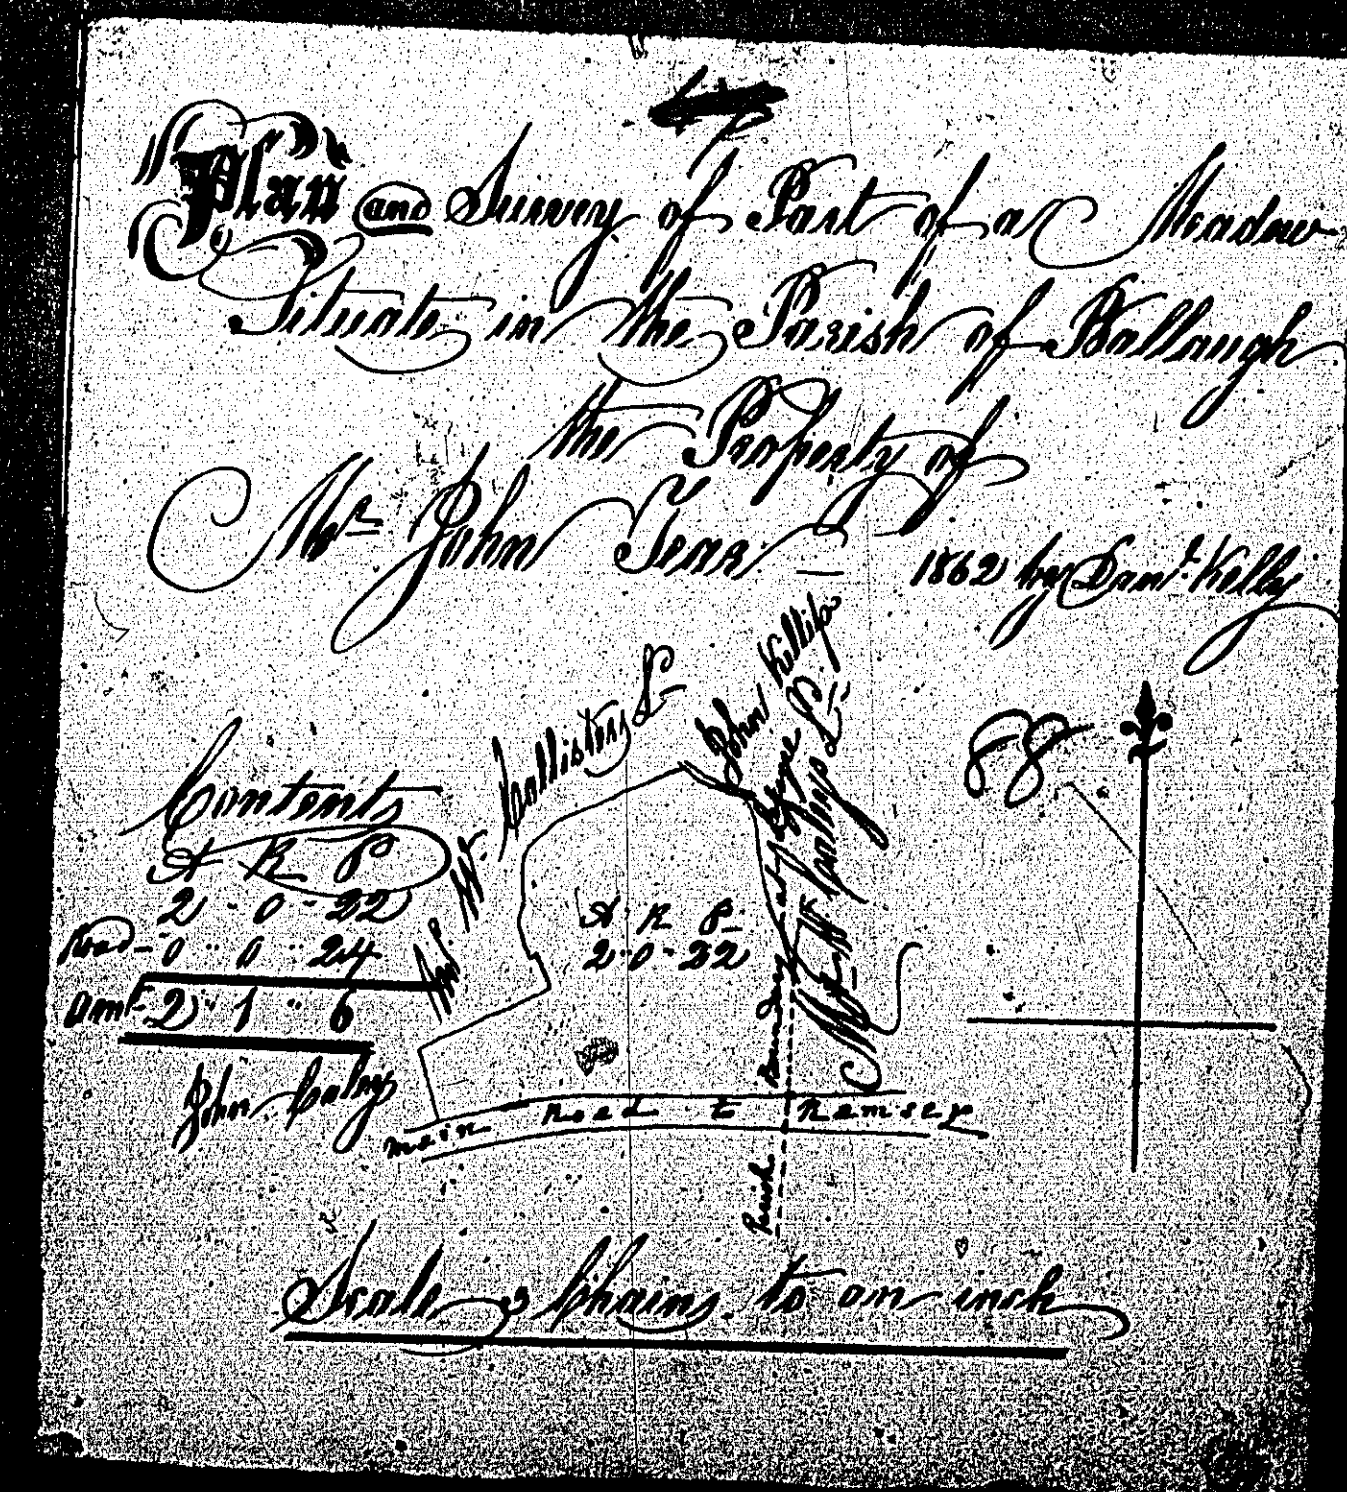 Plan and Survey of Part of a Meadow
Situate in the Parish of Ballaugh
the Property of
Mr John Tear
1862 by Danl. Kelly
88
Contents
A R P
2 - 0 - 22
Road - 0 " 0 " 24
Amt 2 " 1 " 6
John Caley
W. Callisters L
John Killip
A R P
2 " 0 - 22
Boundary at Gaye
Mr W
Main Road to Ramsey
Parish
Scale 3 Chains to an inch